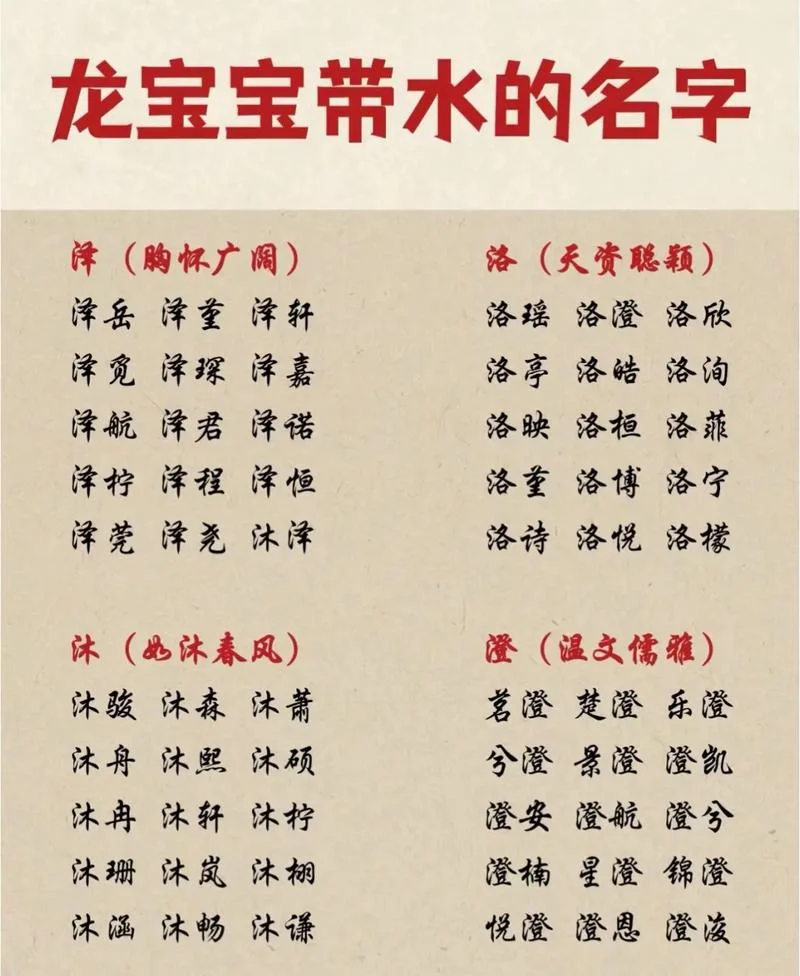 龙宝宝带水的名字
泽（胸怀广阔）
泽岳 泽堇 泽轩
泽觅 泽琛 泽嘉
泽航 泽君 泽诺
泽柠 泽程 泽恒
泽莞 泽尧 沐泽
洛（天资聪颖）
洛瑶 洛澄 洛欣
洛亭 洛皓 洛洵
洛映 洛桓 洛菲
洛堇 洛博 洛宁
洛诗 洛悦 洛檬
沐（如沐春风）
沐骏 沐森 沐萧
沐舟 沐熙 沐硕
沐冉 沐轩 沐柠
沐珊 沐岚 沐栩
沐涵 沐畅 沐谦
澄（温文儒雅）
茗澄 楚澄 乐澄
兮澄 景澄 澄凯
澄安 澄航 澄兮
澄楠 星澄 锦澄
悦澄 澄恩 澄浚